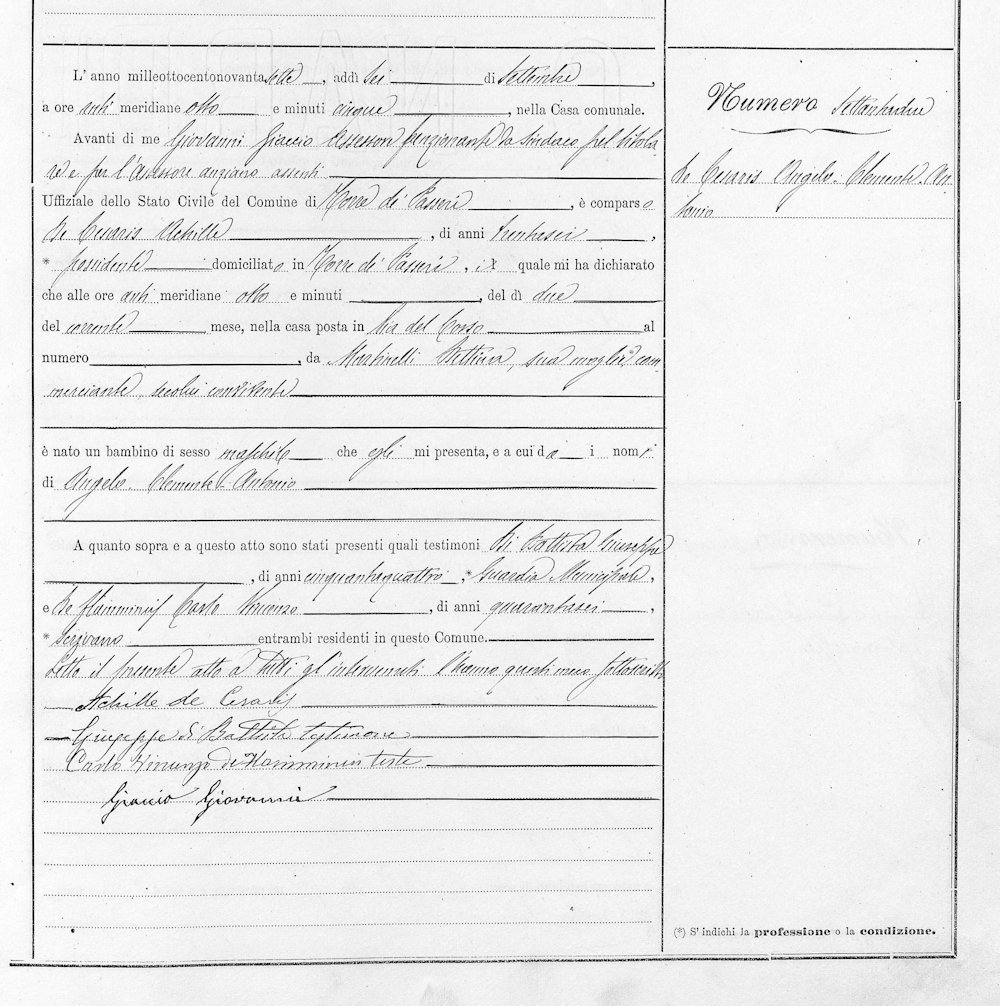 L' anno milleottocentonovanta sette, addì sei di Settembre,
a ore anti meridiane otto e minuti cinque, nella Casa comunale.
Avanti di me Giovanni Giaccio Assessore funzionante da Sindaco pel titola-
re e per l'Assessore anziano assenti
Uffiziale dello Stato Civile del Comune di Torre de' Passeri, è comparso
De Cesaris Achille, di anni trentasei,
* possidente domiciliato in Torre de' Passeri, il quale mi ha dichiarato
che alle ore anti meridiane otto e minuti, del dì due
del corrente mese, nella casa posta in Via del Corso al
numero, da Martinelli Bettina, sua moglie, com-
merciante, secolui convivente
è nato un bambino di sesso maschile che egli mi presenta, e a cui dà i nomi
di Angelo. Clemente. Antonio
A quanto sopra e a questo atto sono stati presenti quali testimoni Di Battista Giuseppe
, di anni cinquantaquattro, * Guardia Municipale,
e De Flamminis Carlo Vincenzo, di anni quarantasei,
* scrivano entrambi residenti in questo Comune.
Letto il presente atto a tutti gl'intervenuti l'hanno questi meco sottoscritto
Achille de Cesaris
Giuseppe di Battista testimone
Carlo Vincenzo de Flamminis teste
Giaccio Giovanni
Numero
de Cesaris Angelo. Clemente. An-
tonio
(*) S' indichi la professione o la condizione.